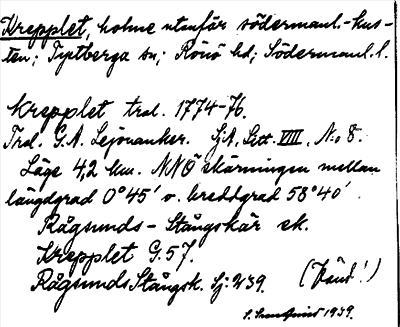 Krepplet, holme utanför södermanl.-kus-
ten; Tystberga sn; Rönö hd; Södermanl. l.
Krepplet trol. 1774-76.
Trol. G.A. Lejonanker. SjA, Litt. VIII, N:o 8.
Läge 4,2 km. NNÖ skärningen mellan
längdgrad 0°45' o. breddgrad 58°40'.
Rågsunds - Stångskär ek.
Krepplet G:57.
Rågsunds Stångsk. Sj: 239. (Känd!)
1939.